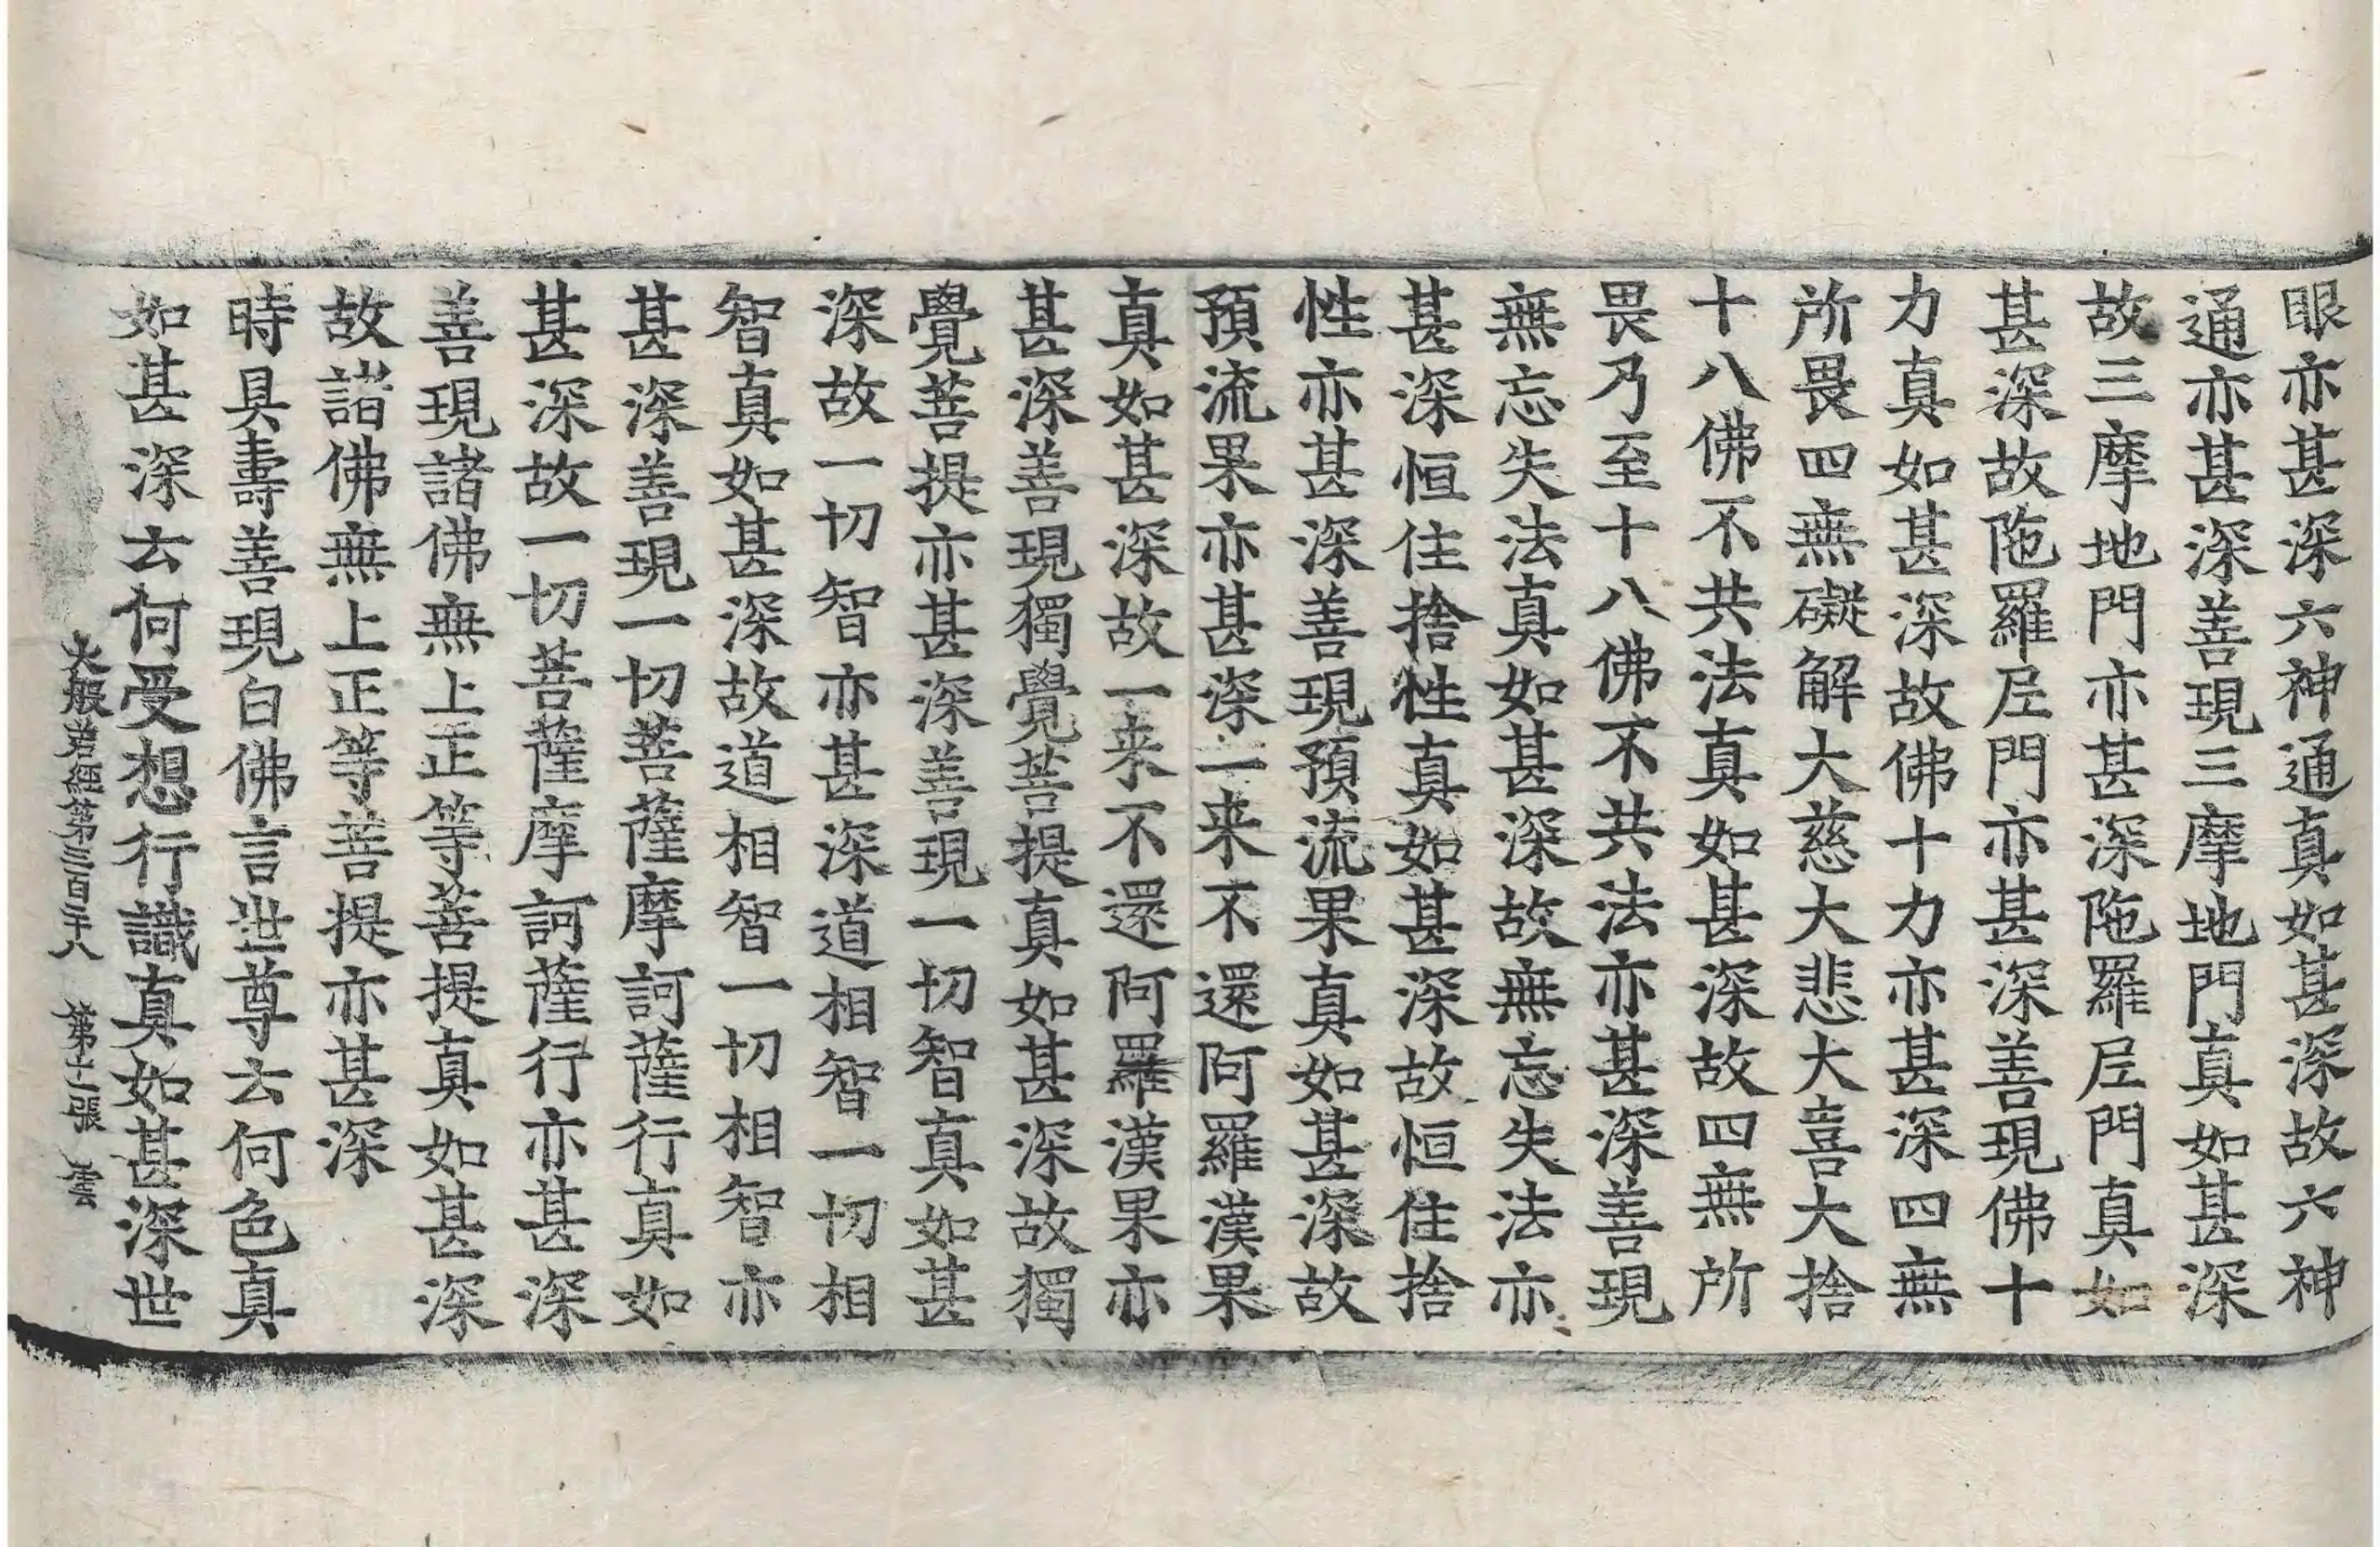 眼亦甚深六神通真如甚深故六神
通亦甚深善現三摩地門真如甚深
故三摩地門亦甚深陁羅尼門真如
甚深故陁羅尼門亦甚深善現佛十
力真如甚深故佛十力亦甚深四無
所畏四無礙解大慈大悲大喜大捨
十八佛不共法真如甚深故四無所
畏乃至十八佛不共法亦甚深善現
無忘失法真如甚深故無忘失法亦
甚深恒住捨性真如甚深故恒住捨
性亦甚深善現預流果真如甚深故
預流果亦甚深一来不還阿羅漢果
真如甚深故一来不還阿羅漢果亦
甚深善現獨覺菩提真如甚深故獨
覺菩提亦甚深善現一切智真如甚
深故一切智亦甚深道相智一切相
智真如甚深故道相智一切相智亦
甚深善現一切菩薩摩訶薩行真如
甚深故一切菩薩摩訶薩行亦甚深
善現諸佛無上正等菩提真如甚深
故諸佛無上正等菩提亦甚深
時具壽善現白佛言世尊云何色真
如甚深云何受想行識真如甚深世
大般若經第三百二十八 第十二張